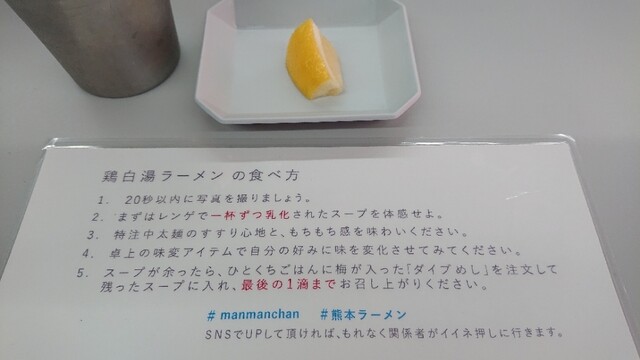 鶏白湯ラーメン の食べ方
1. 20秒以内に写真を撮りましょう。
2. まずはレンゲで一杯ずつ乳化されたスープを体感せよ。
3. 特注中太麺のすすり心地と、もちもち感を味わいください。
4. 卓上の味変アイテムで自分の好みに味を変化させてみてください。
5. スープが余ったら、ひとくちごはんに梅が入った「ダイブめし」を注文して
残ったスープに入れ、最後の1滴までお召し上がりください。
# manmanchan #熊本ラーメン
SNSでUPして頂ければ、もれなく関係者がイイネ押しに行きます。